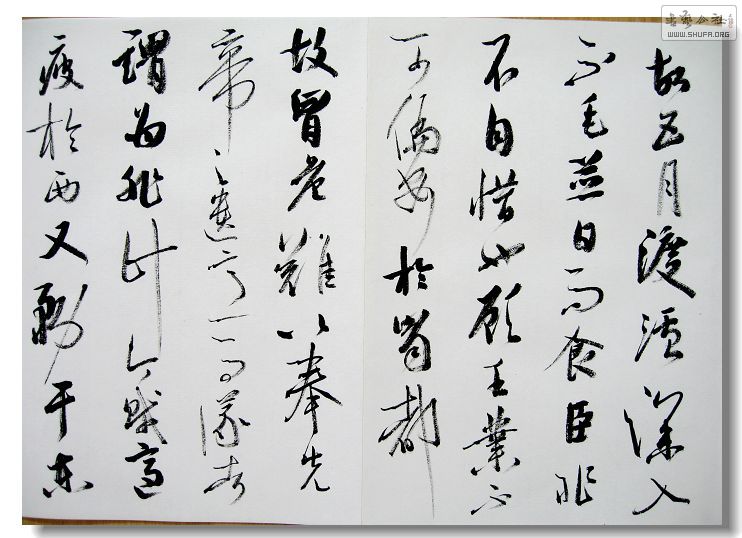 故五月渡瀘深入
不毛並日而食臣非
不自惜也顧王業不
可偏安於蜀都
故冒危難以奉先
帝之遺意而議者
謂為非計今賊適
疲於西又務于東
书艺公社
WWW.SHUFA.ORG